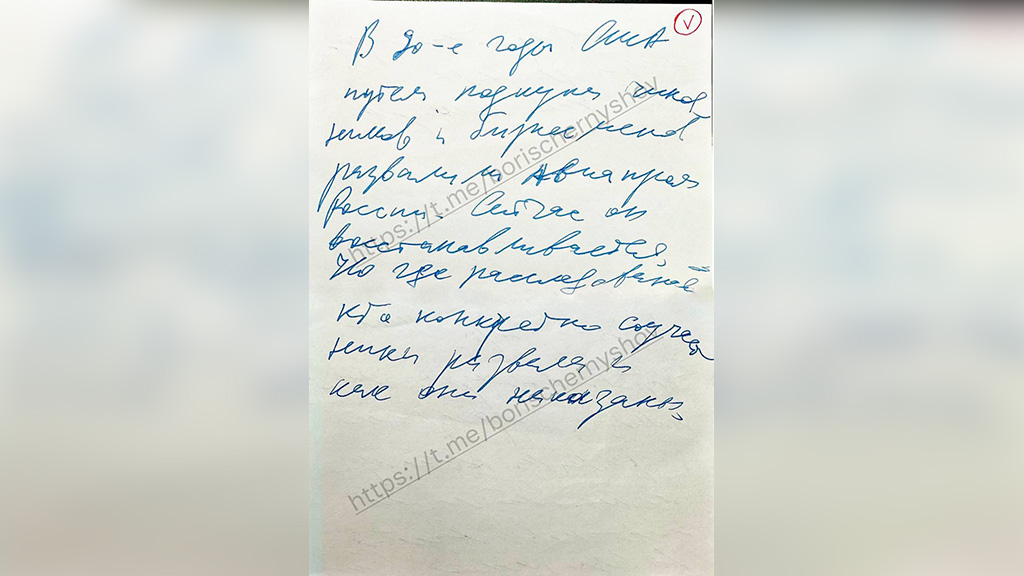 В 90-е годы США
путем подкупа чинов
ников и бизнесменов
развалили Авиапром
России. Сейчас он
восстанавливается,
Но где расследование
кто конкретно соучаст
ники развала и
как они наказаны,
https://t.me/borischernyshov
https://t.me/borischernyshov